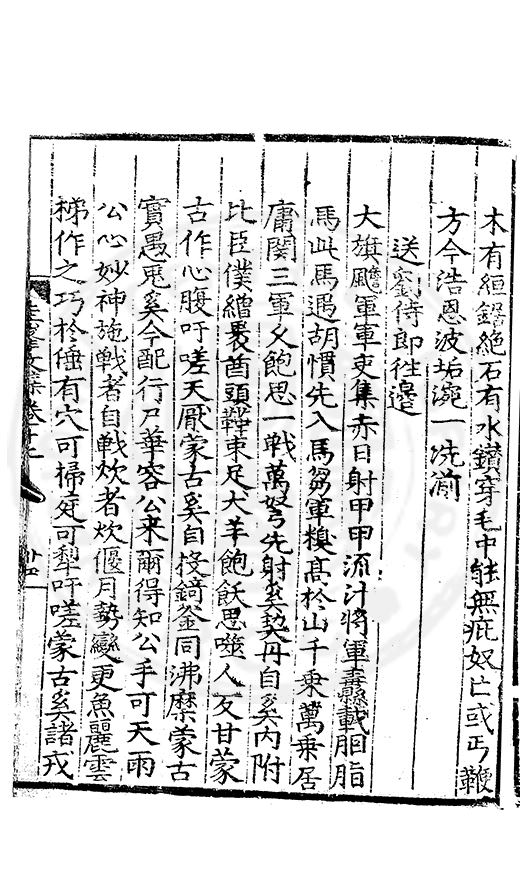 木有絙鋸絶石有水鑽穿毛中能無疵奴亡或丐鞭
方今浩恩波垢涴一洗湔
送劉侍郎往邊
大旗颭軍軍吏集赤日射甲甲流汁將軍纛縣載胭脂
馬此馬遇胡慣先入馬芻軍糗髙於山千乗萬乗居
庸関三軍乂飽思一戰萬弩先射奚契丹自奚内附
比臣僕繒褁酋頭鞾束足犬羊飽飫思噬人反甘蒙
古作心腹吁嗟天厭蒙古奚自投錡釡同沸糜蒙古
實愚兎奚今配行尸華容公来爾得知公手可天雨
公心妙神施戰者自戰炊者炊偃月勢變更魚麗雲
梯作之巧於倕有穴可掃庭可犁吁嗟蒙古奚諸戎